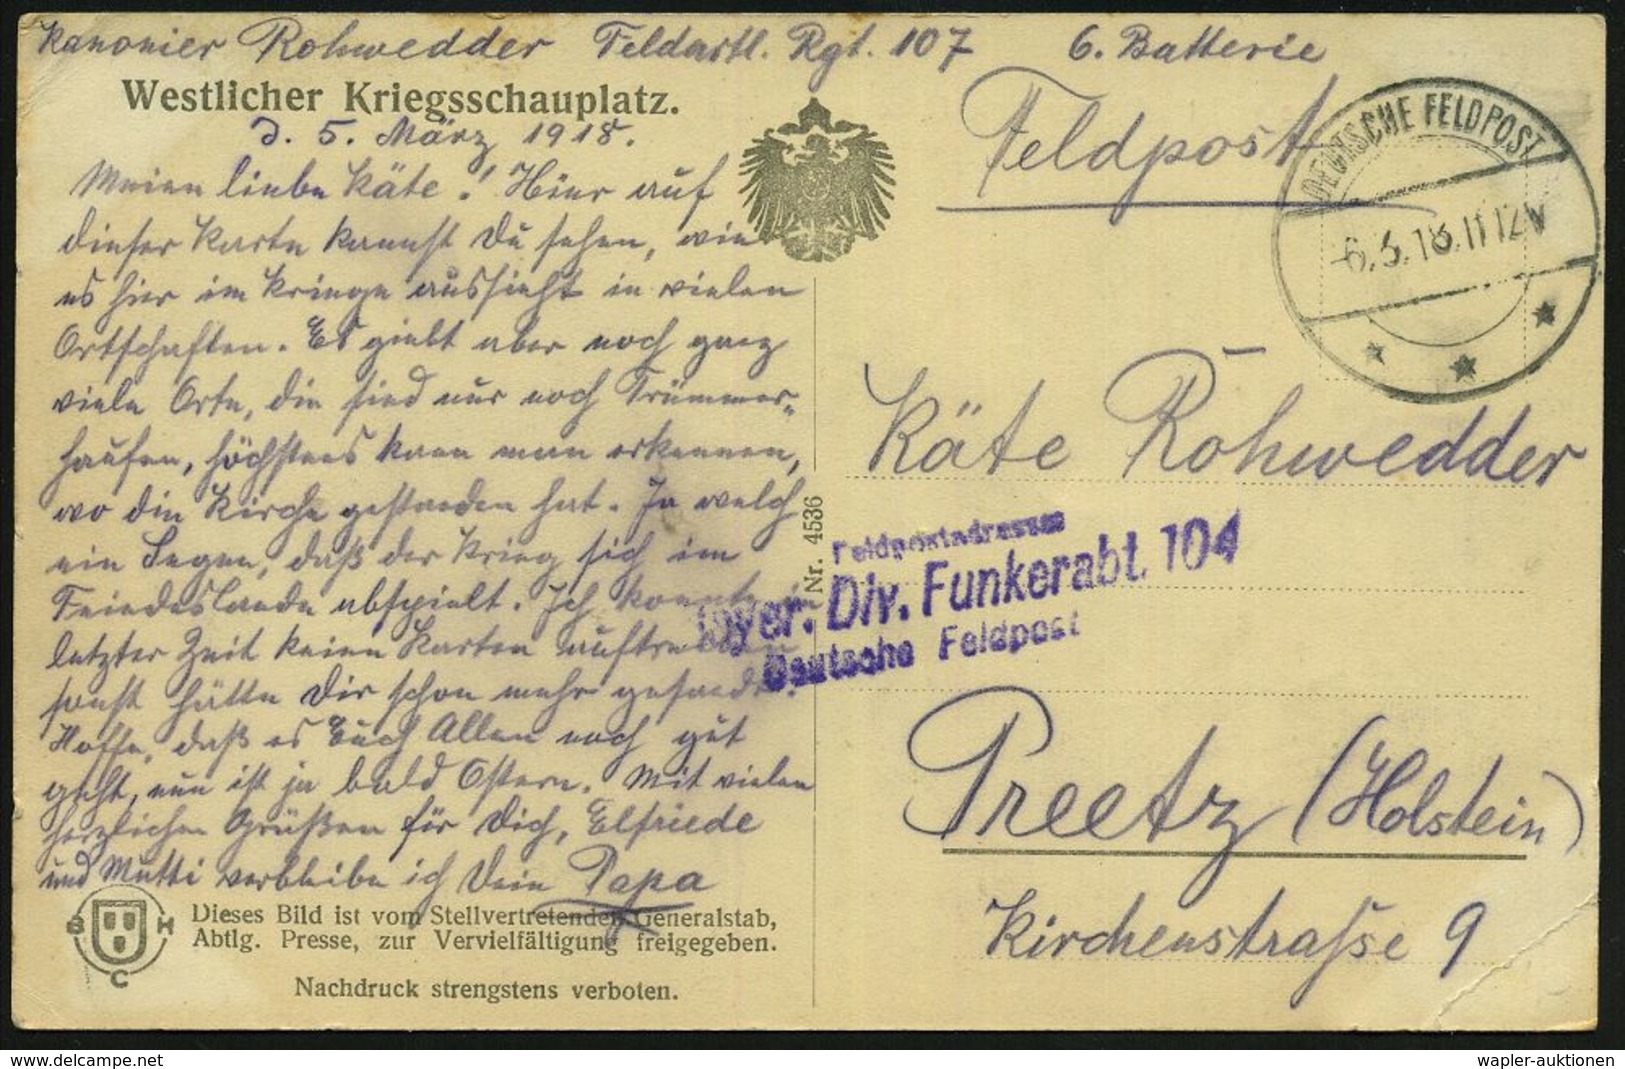 Kanonier Rohwedder Feldartl. Rgt. 107 6. Batterie
Westlicher Kriegsschauplatz.
d. 5. März 1918.
Meine liebe Käte! Hier auf
dieser Karte kannst Du sehen, wie
es hier im Kriege aussieht in vielen
Ortschaften. Es giebt aber noch ganz
viele Orte, die sind nur noch Trümmer-
haufen, höchstens kann man erkennen,
wo die Kirche gestanden hat. Ja welch
ein Segen, daß der Krieg sich im
Feindeslande abspielt. Ich konnte in
letzter Zeit keine Karten auftreiben
sonst hätte Dir schon mehr gesandt.
Hoffe, daß es Euch Allen noch gut
geht, nun ist ja bald Ostern. Mit vielen
herzlichen Grüßen für Dich, Elfriede
und Mutti verbleibe ich Dein Papa
B H
C
Dieses Bild ist vom Stellvertretenden Generalstab,
Abtlg. Presse, zur Vervielfältigung freigegeben.
Nachdruck strengstens verboten.
Nr. 4536
Feldpost
DEUTSCHE FELDPOST
-6.3.18.11 12V
Käte Rohwedder
Feldpostadresse
Bayer. Div. Funkerabt. 104
Deutsche Feldpost
Preetz (Holstein)
Kirchenstraße 9
wapler-auktionen